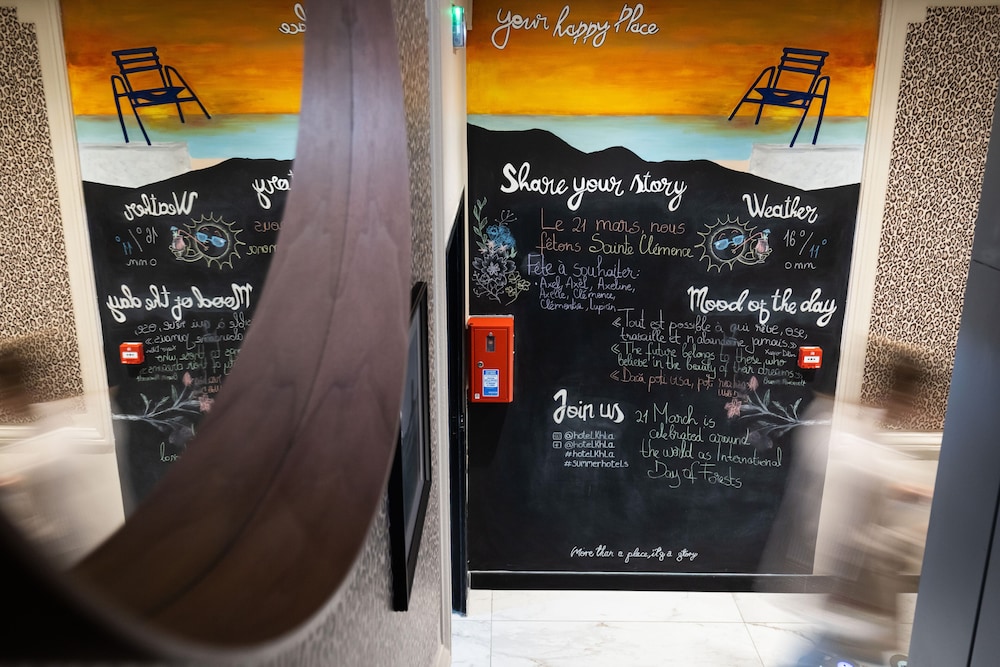 your happy Place
Share your story
Le 21 mars, nous
fêtons Sainte Clémence
Fête à souhaiter:
• Axel, Axel, Axeline,
Axelle, Clémence,
Clémentia, Lupin
Weather
16°/11°
0 mm
Mood of the day
« Tout est possible à qui rêve, ose,
travaille et n'abandonne jamais »
« The future belongs to those, who
believe in the beauty of their dreams »
« Dacă poți visa, poți
Join us
@hotelkhla
@hotelkhla
#hotelkhla
#summerhotels
21 March is
celebrated around
the world as International
Day of Forests
More than a place, it's a story